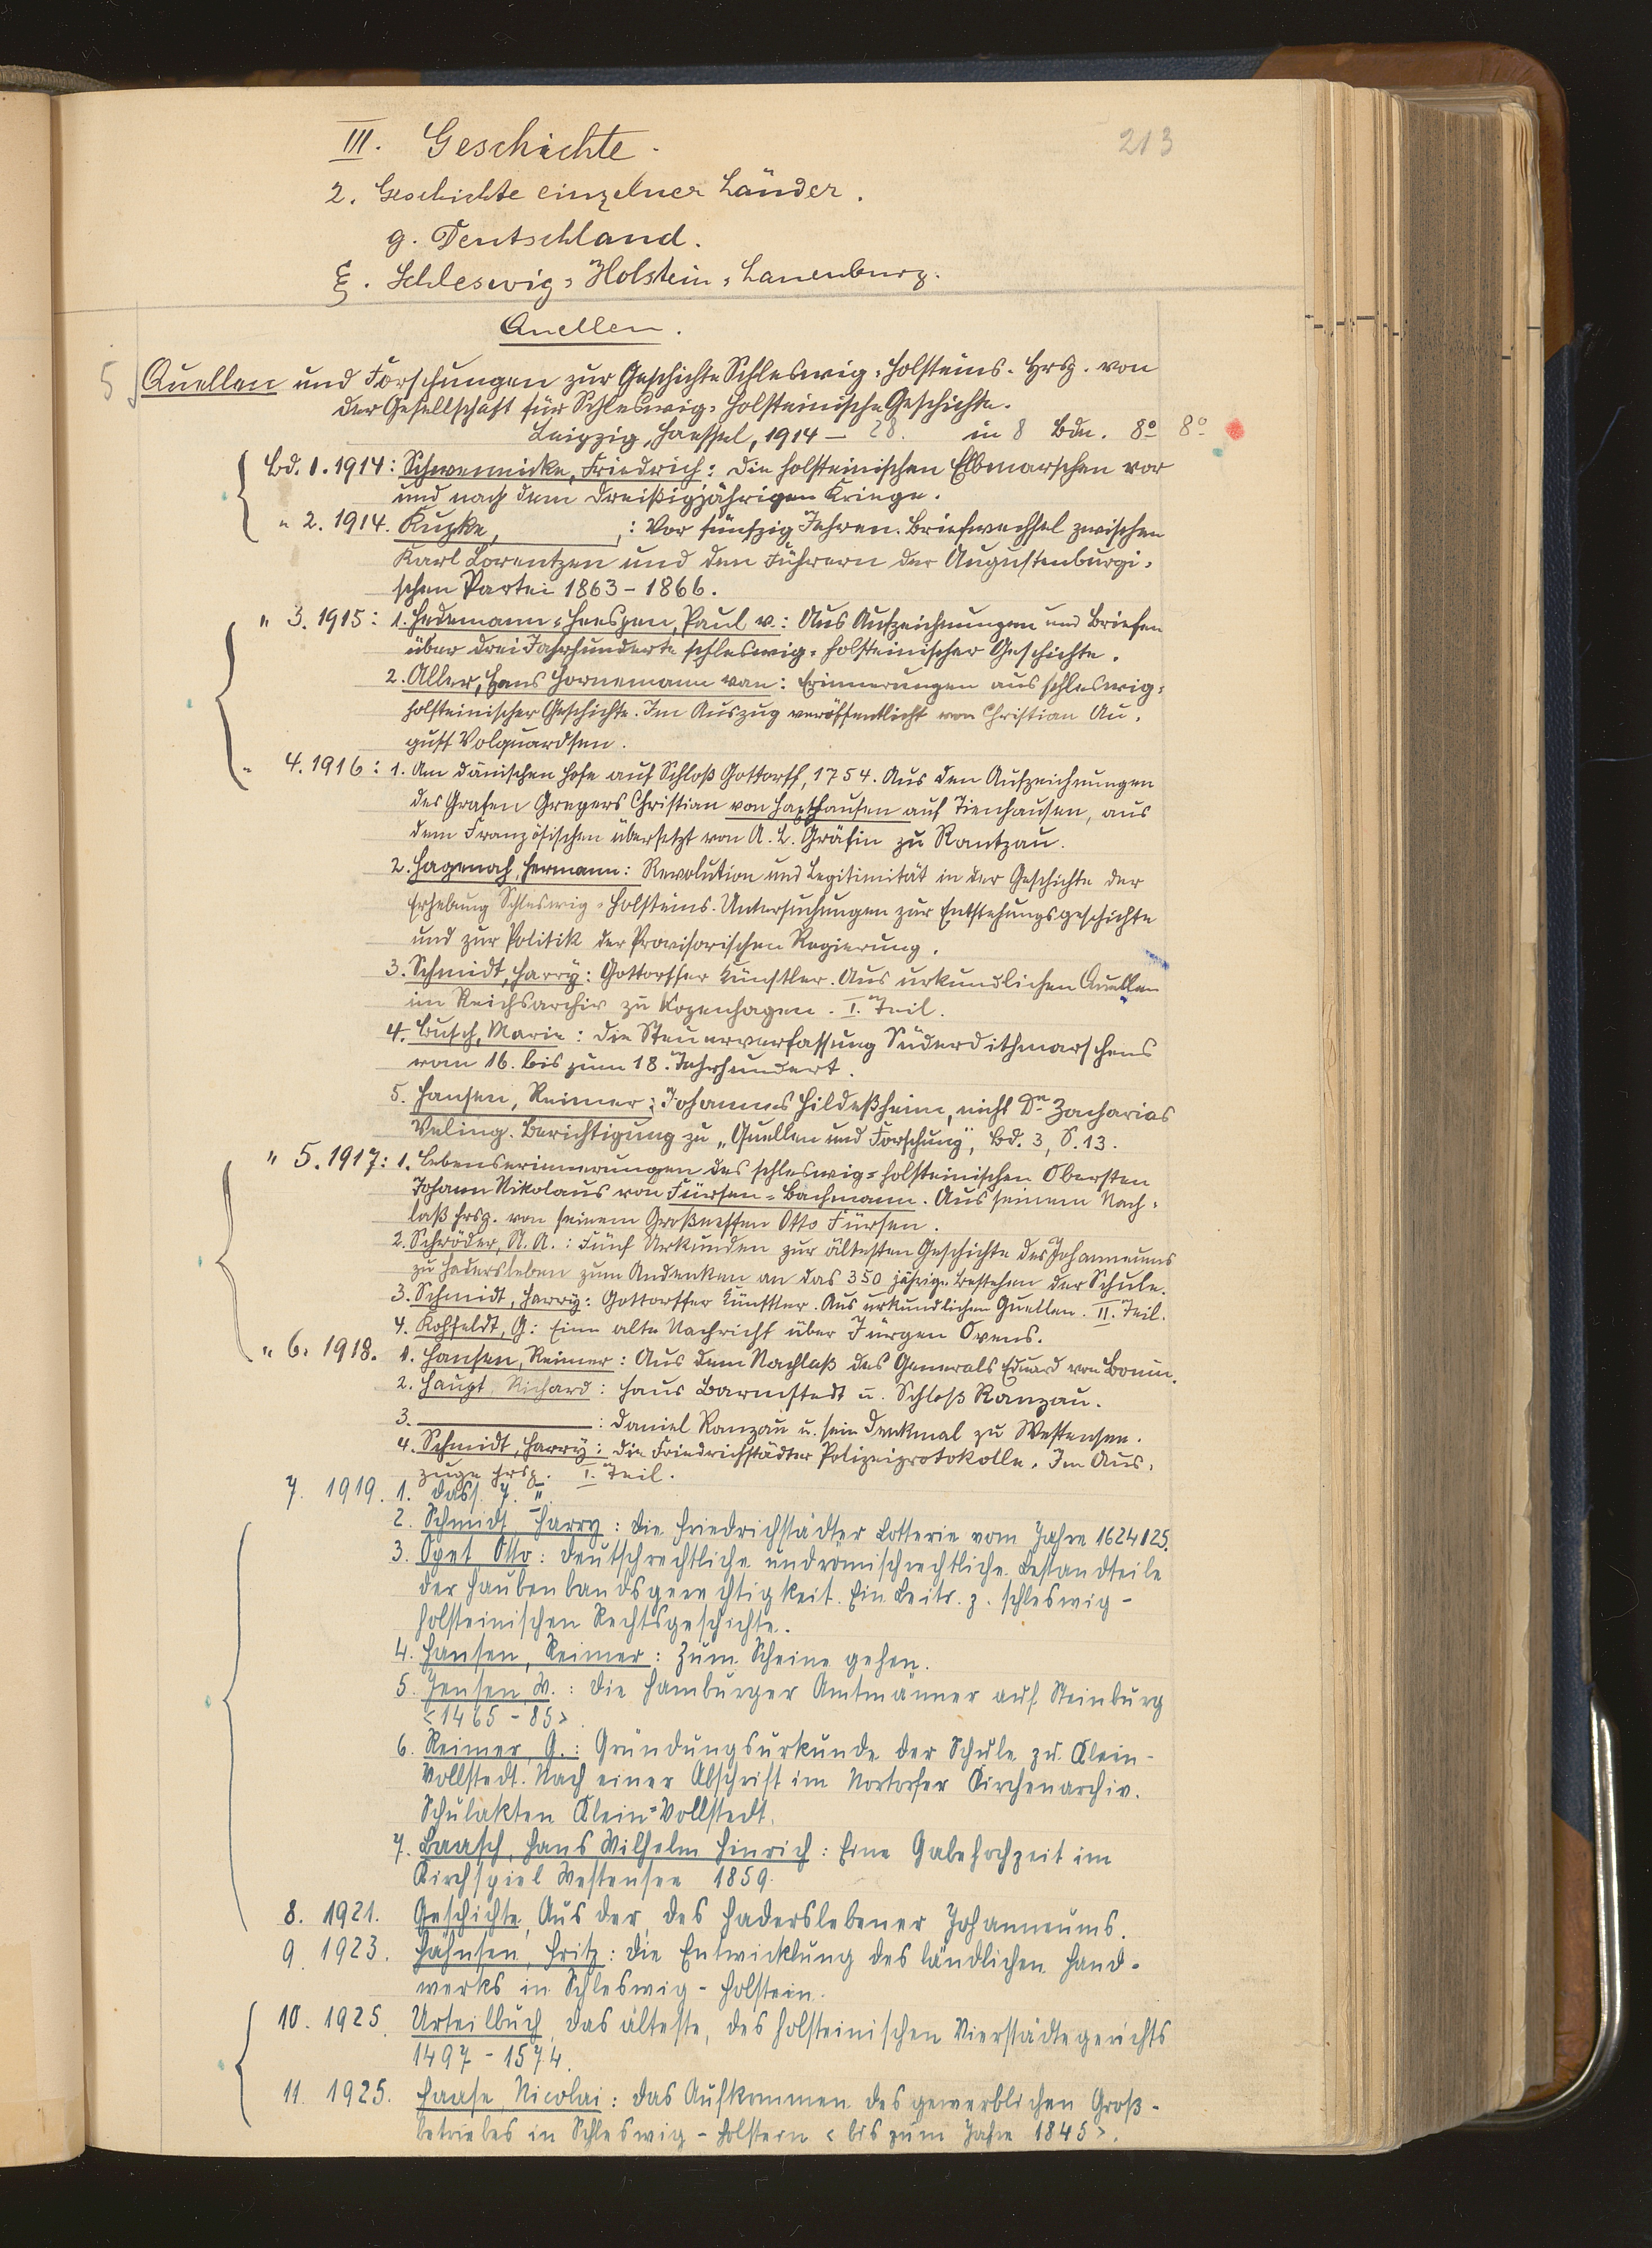 III. Geschichte.
213
2. Geschichte einzelner Länder.
g. Deutschland.
ξ. Schleswig-Holstein-Lauenburg.
Quellen.
5 Quellen und Forschungen zur Geschichte Schleswig-Holsteins. Hrsg. von
der Gesellschaft für Schleswig-Holsteinische Geschichte.
Leipzig, Haessel, 1914 – 28. in 8 Bdn. 8° 8°
Bd. 1. 1914: Schwennicke, Friedrich: Die holsteinischen Elbmarschen vor
und nach dem Dreißigjährigen Kriege.
" 2. 1914. Kupke, : Vor fünfzig Jahren. Briefwechsel zwischen
Karl Lorentzen und den Führern der Augustenburgi-
schen Partei 1863-1866.
" 3. 1915: 1. Hedemann-Heespen, Paul v.: Aus Aufzeichnungen und Briefen
über drei Jahrhunderte schleswig-holsteinischer Geschichte.
2. Aller, Hans Hornemann van: Erinnerungen aus schleswig-
holsteinischer Geschichte. Im Auszug veröffentlicht von Christian Au-
gust Volquardsen.
" 4. 1916: 1. Am dänischen Hofe auf Schloß Gottorff, 1754. Aus den Aufzeichnungen
des Grafen Gregers Christian von Haxthausen auf Tienhausen, aus
dem Französischen übersetzt von A. L. Gräfin zu Rantzau.
2. Hagenah, Hermann: Revolution und Legitimität in der Geschichte der
Erhebung Schleswig-Holsteins. Untersuchungen zur Entstehungsgeschichte
und zur Politik der Provisorischen Regierung.
3. Schmidt, Harry: Gottorffer Künstler. Aus urkundlichen Quellen
im Reichsarchiv zu Kopenhagen. I. Teil.
4. Busch, Marie: Die Steuerverfassung Süderdithmarschens
vom 16. bis zum 18. Jahrhundert.
5. Hansen, Reimer: Johannes Hildeßheim, nicht Dr. Zacharias
Veling. Berichtigung zu „Quellen und Forschung", Bd. 3, S. 13.
" 5. 1917: 1. Lebenserinnerungen des schleswig-holsteinischen Obersten
Johann Nikolaus von Fürsen-Bachmann. Aus seinem Nach-
laß hrsg. von seinem Großneffen Otto Fürsen.
2. Schröder, A. A.: Fünf Urkunden zur ältesten Geschichte des Johanneums
zu Hadersleben zum Andenken an das 350 jährige Bestehen der Schule.
3. Schmidt, Harry: Gottorffer Künstler. Aus urkundlichen Quellen. II. Teil.
4. Kohfeldt, G: Eine alte Nachricht über Jürgen Ovens.
" 6. 1918. 1. Hansen, Reimer: Aus dem Nachlaß des Generals Eduard von Bonin.
2. Haupt, Richard: Haus Barmstedt u. Schloß Ranzau.
3. : Daniel Ranzau u. sein Denkmal zu Westensee.
4. Schmidt, Harry: Die Friedrichstädter Polizeiprotokolle. Im Aus-
zuge hrsg. I. Teil.
7. 1919. 1. Dass. T. II.
2. Schmidt, Harry: Die Friedrichstädter Lotterie vom Jahre 1624/25.
3. Opet, Otto: Deutschrechtliche und römischrechtliche Bestandteile
der Haubenbandsgerechtigkeit. Ein Beitr. z. schleswig-
holsteinischen Rechtsgeschichte.
4. Hansen, Reimer: Zum Scheine gehen.
5. Jensen, W.: Die Hamburger Amtmänner auf Steinburg
<1465-85>.
6. Reimer, G.: Gründungsurkunde der Schule zu Klein-
Vollstedt. Nach einer Abschrift im Nortorfer Kirchenarchiv.
Schulakten Klein-Vollstedt.
7. Baasch, Hans Wilhelm Hinrich: Eine Gabehochzeit im
Kirchspiel Westensee 1859.
8. 1921. Geschichte, Aus der, des Haderslebener Johanneums.
9. 1923. Hähnsen, Fritz: Die Entwicklung des ländlichen Hand-
werks in Schleswig-Holstein.
10. 1925. Urteilbuch, Das älteste, des holsteinischen Vierstädtegerichts
1497-1574.
11. 1925. Haase, Nicolai: Das Aufkommen des gewerblichen Groß-
betriebes in Schleswig-Holstein <bis zum Jahre 1845>.